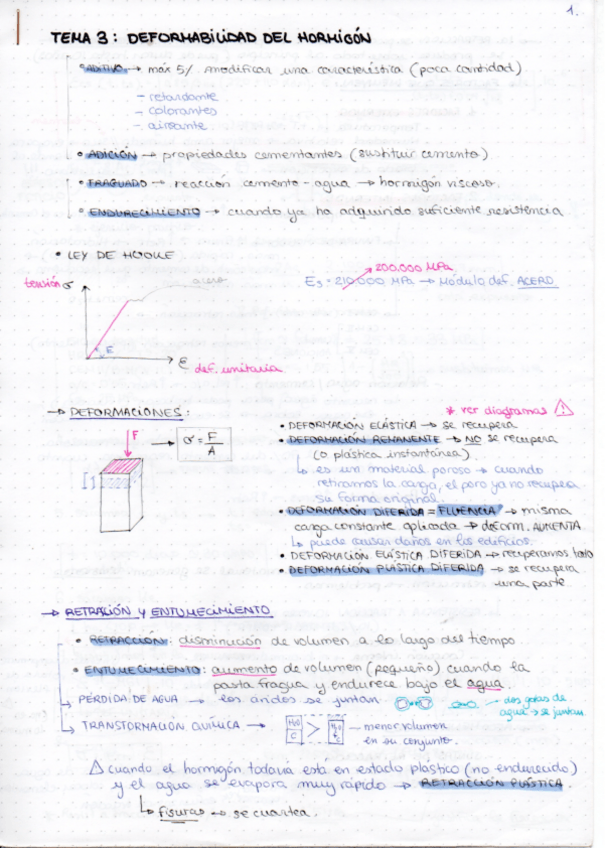 1.
TEMA 3: DEFORMABILIDAD DEL HORMIGÓN
• ADITIVO → máx 5% modificar una característica (poca cantidad)
- retardante
- colorantes
- aireante
• ADICIÓN → propiedades cementantes (sustituir cemento)
• FRAGUADO → reacción cemento - agua → hormigón viscoso.
• ENDURECIMIENTO → cuando ya ha adquirido suficiente resistencia
• LEY DE HOOKE
tensión σ
acero
E
ε def. unitaria
200.000 MPa
Es = 210.000 MPa → Módulo def. ACERO
→ DEFORMACIONES:
F
→ σ = F/A
* ver diagramas ⚠
• DEFORMACIÓN ELÁSTICA → se recupera
• DEFORMACIÓN REMANENTE → NO se recupera
(o plástica instantánea).
↳ es un material poroso → cuando
retiramos la carga, el poro ya no recupera
su forma original.
• DEFORMACIÓN DIFERIDA = FLUENCIA → misma
carga constante aplicada → deform. AUMENTA
↳ puede causar daños en los edificios.
• DEFORMACIÓN ELÁSTICA DIFERIDA → recuperamos todo
• DEFORMACIÓN PLÁSTICA DIFERIDA → se recupera
una parte.
→ RETRACIÓN Y ENTUMECIMIENTO
• RETRACCIÓN: disminución de volumen a lo largo del tiempo
• ENTUMECIMIENTO: aumento de volumen (pequeño) cuando la
pasta fragua y endurece bajo el agua
↳ PÉRDIDA DE AGUA → los áridos se juntan
→ dos gotas de
agua → se juntan
↳ TRANSFORMACIÓN QUÍMICA →
H2O
C
>
H2O
C
— menor volumen
en su conjunto.
⚠ cuando el hormigón todavía está en estado plástico (no endurecido)
y el agua se evapora muy rápido → RETRACCIÓN PLÁSTICA.
↳ fisuras → se cuartea.